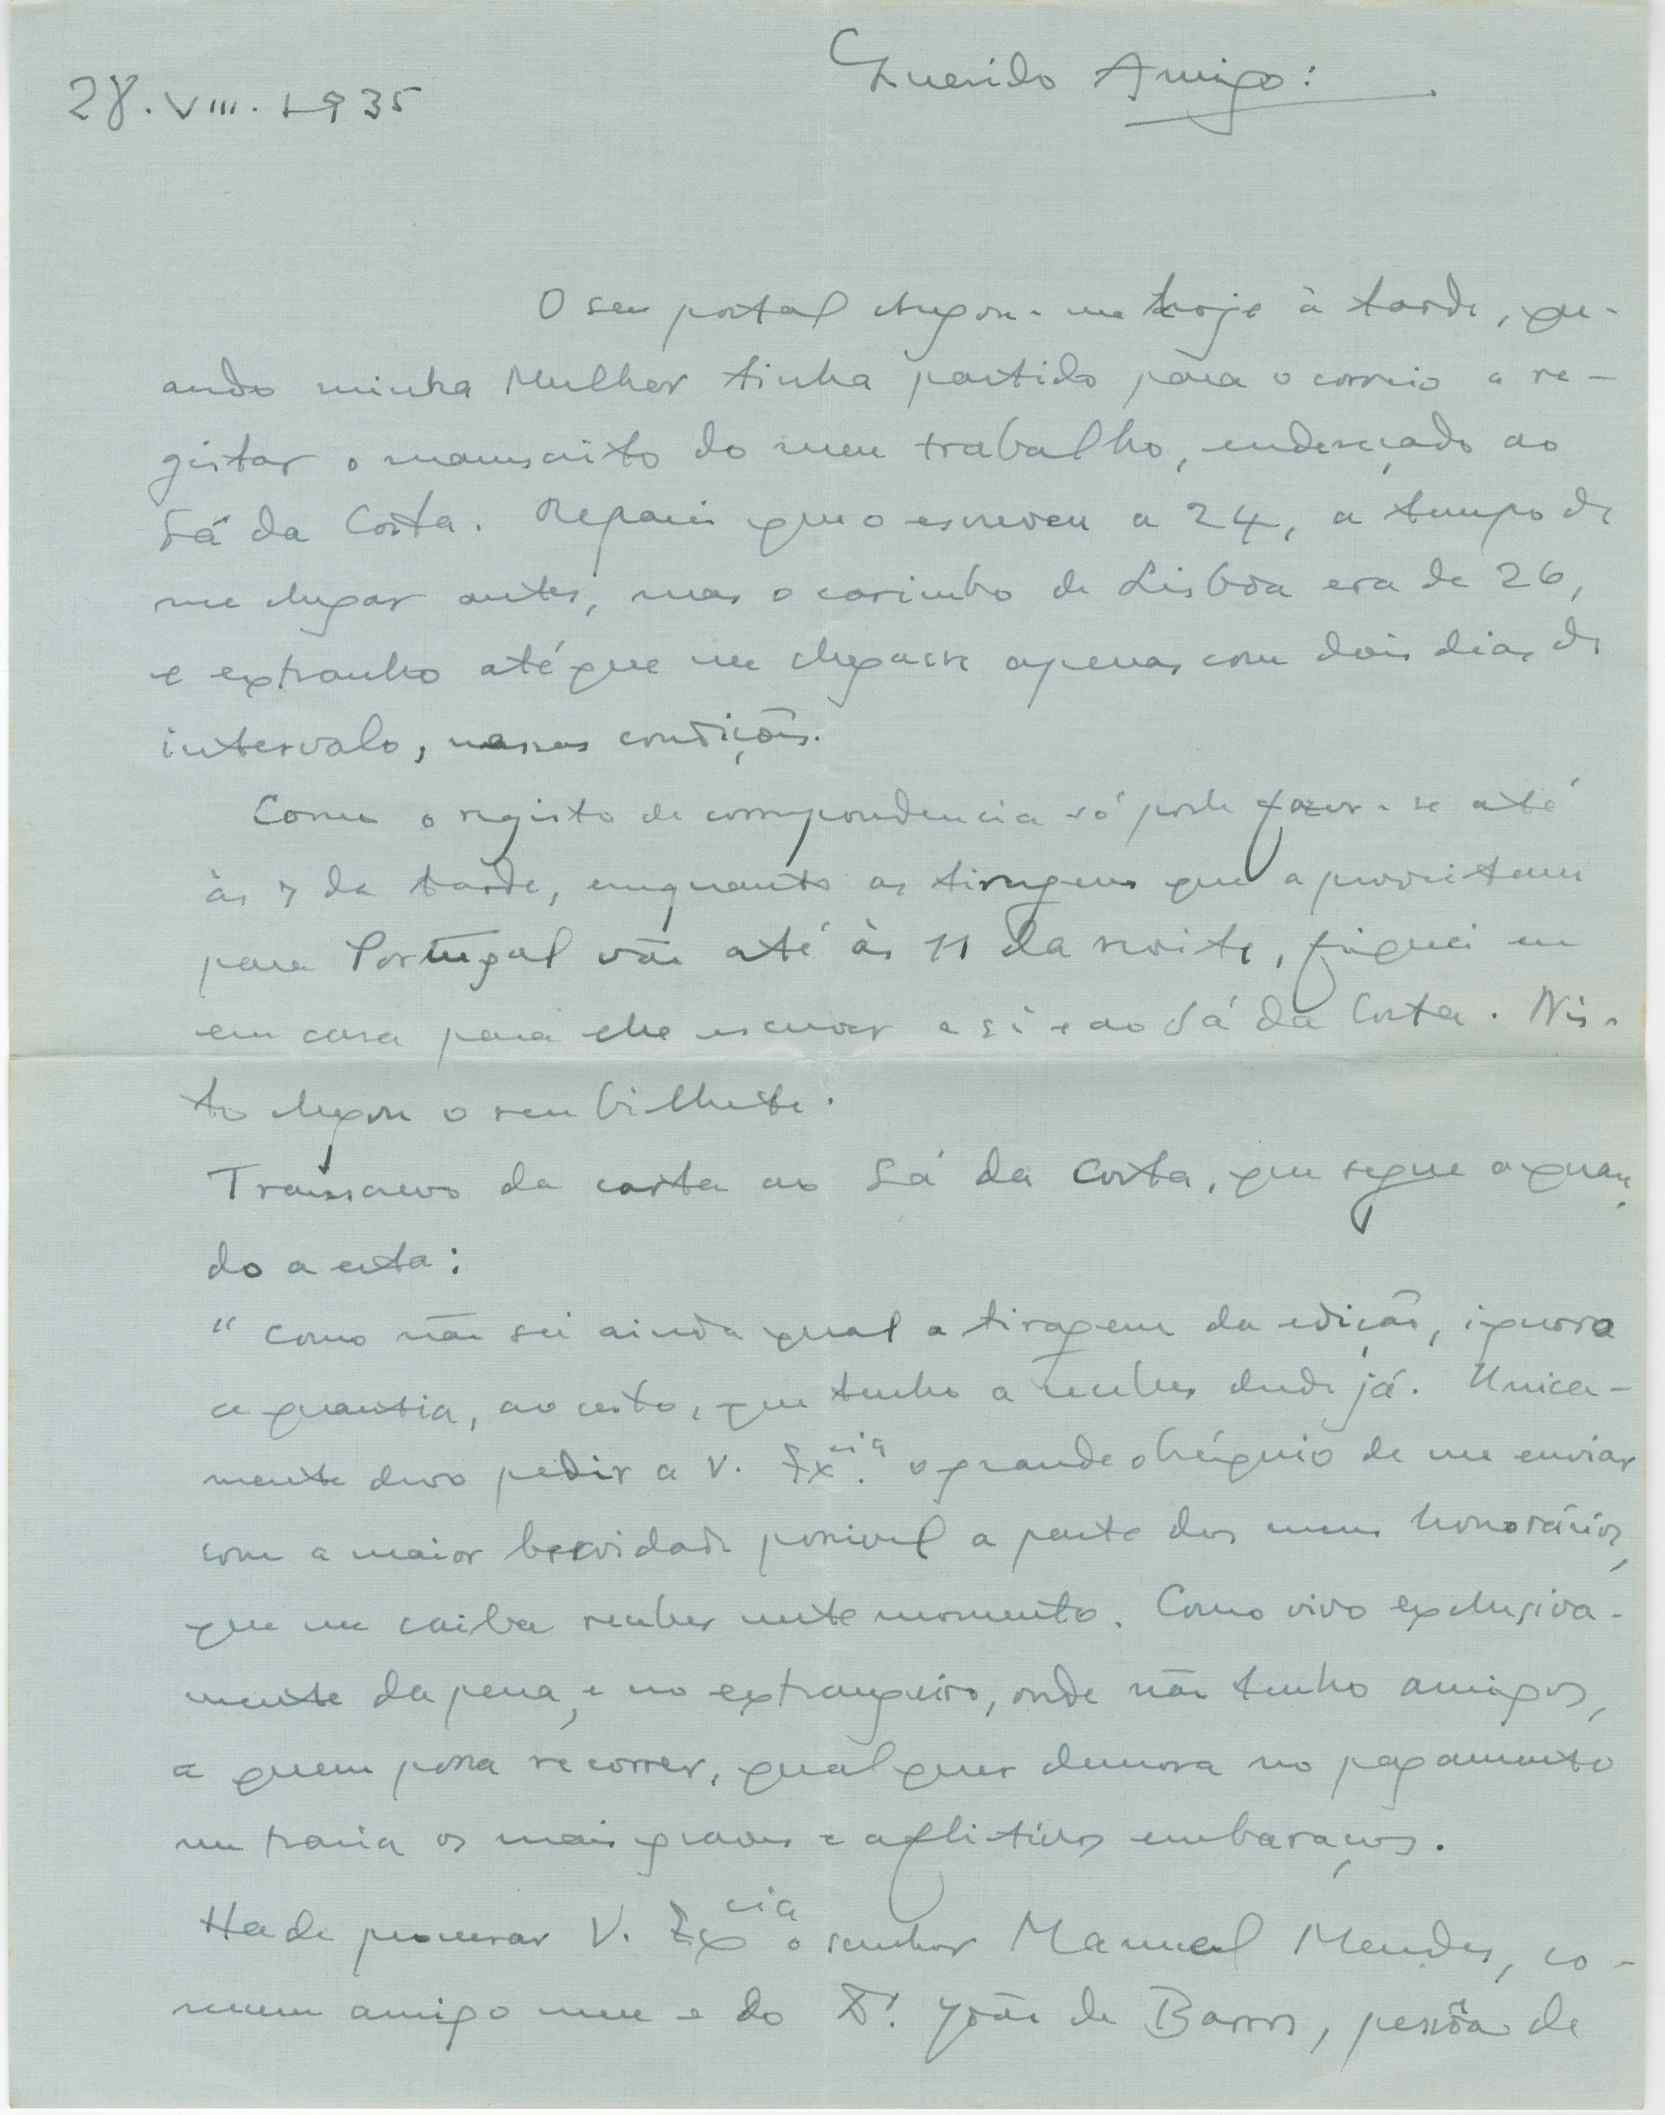 28.VIII.1935
Querido Amigo:
O seu postal chegou-me hoje à tarde, qu-
ando minha Mulher tinha partido para o correio a re-
gistar o manuscrito do meu trabalho, endereçado ao
Sá da Costa. Reparei que o escreveu a 24, a tempo de
me chegar antes, mas o carimbo de Lisboa era de 26,
e extranho até que me chegasse apenas com dois dias de
intervalo, nessas condições.
Como o registo de correspondencia só pode fazer-se até
às 7 da tarde, emquanto as tiragens que aproveitam
para Portugal vão até às 11 da noite, fiquei eu
em casa para lhe escrever a si e ao Sá da Costa. Nis-
to chegou o seu bilhete.
Transcrevo da carta ao Sá da Costa, que segue aquan-
do a esta:
"Como não sei ainda qual a tiragem da edição, ignoro
a quantia, ao certo, que tenho a receber desde já. Unica-
mente devo pedir a V. Ex.cia o grande obséquio de me enviar
com a maior brevidade possivel a parte dos meus honorários,
que me caiba receber neste momento. Como vivo exclusiva-
mente da pena, e no extrangeiro, onde não tenho amigos,
a quem possa recorrer, qualquer demora no pagamento
me traria os mais graves e aflitivos embaraços.
Hade procurar V. Excia o senhor Manuel Mendes, co-
mum amigo meu e do Dr. João de Barros, pessôa de